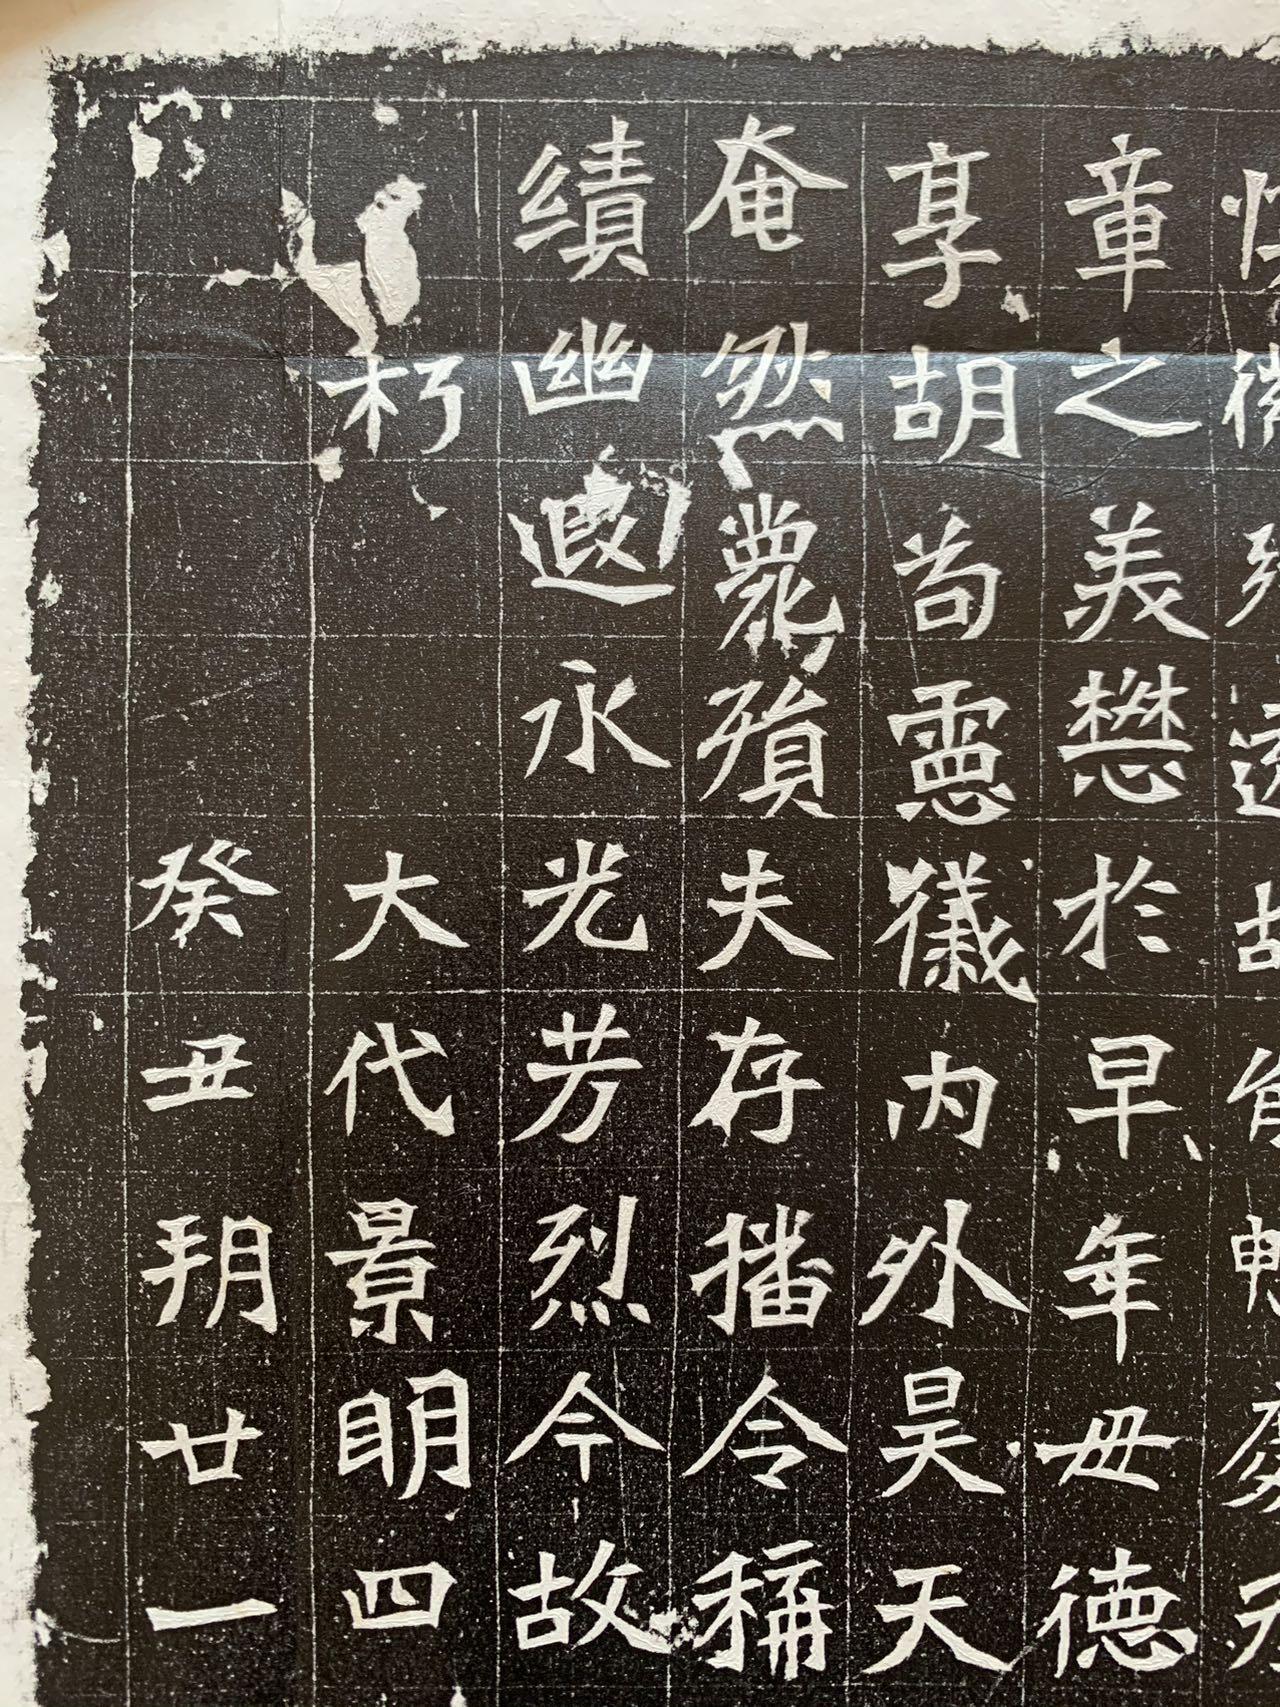 章之美懋於早年毋德
享胡苟靈儀内外昊天
奄然殞夫存播令稱
績幽遐永光芳烈今故
朽大代景明四
癸丑朔廿一